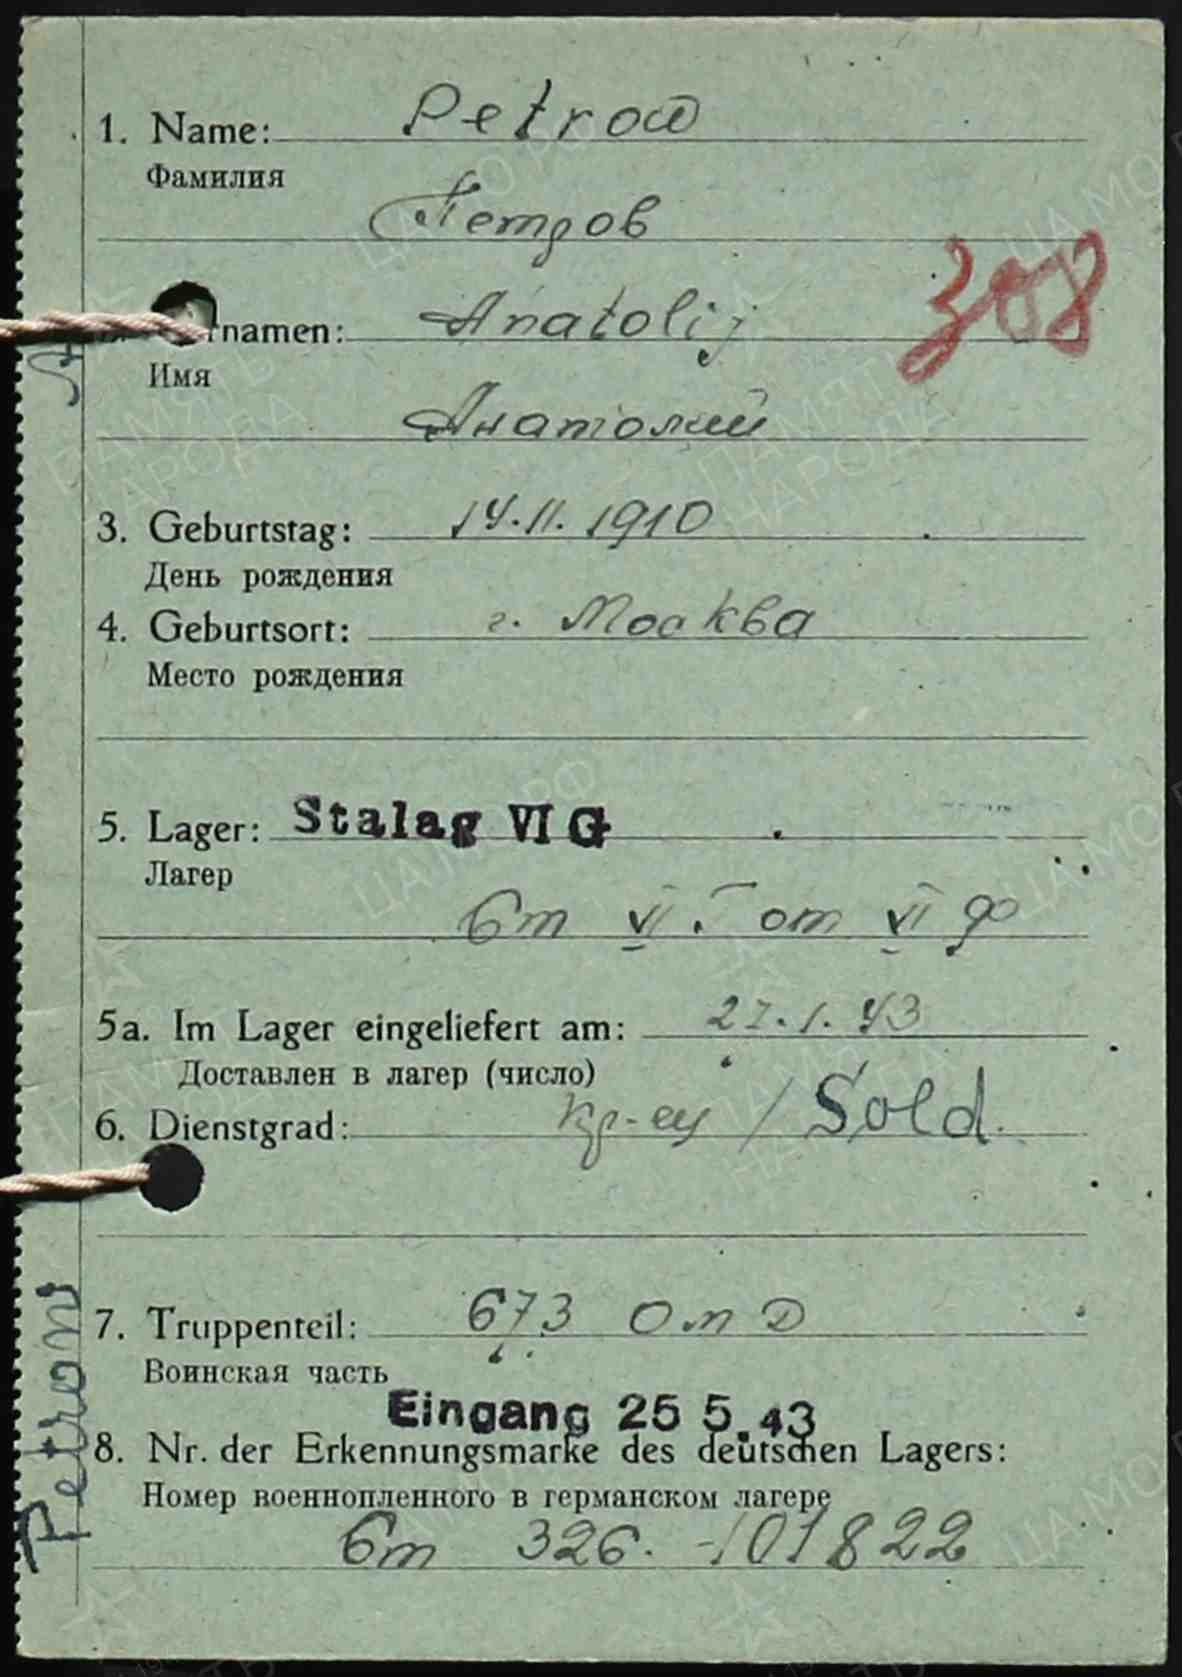 1. Name: Petrow
Фамилия
Петров
namen: Anatolij
Имя
Анатолий
3. Geburtstag: 14.11.1910
День рождения
4. Geburtsort: г. Москва
Место рождения
5. Lager: Stalag VI G
Лагер
VI Г от VI Ф
5a. Im Lager eingeliefert am: 27.1.43
Доставлен в лагер (число)
6. Dienstgrad: кр-ец / Sold.
7. Truppenteil: 673
Воинская часть
Eingang 25 5.43
8. Nr. der Erkennungsmarke des deutschen Lagers:
Номер военнопленного в германском лагере
326. 101822
308
Petrow